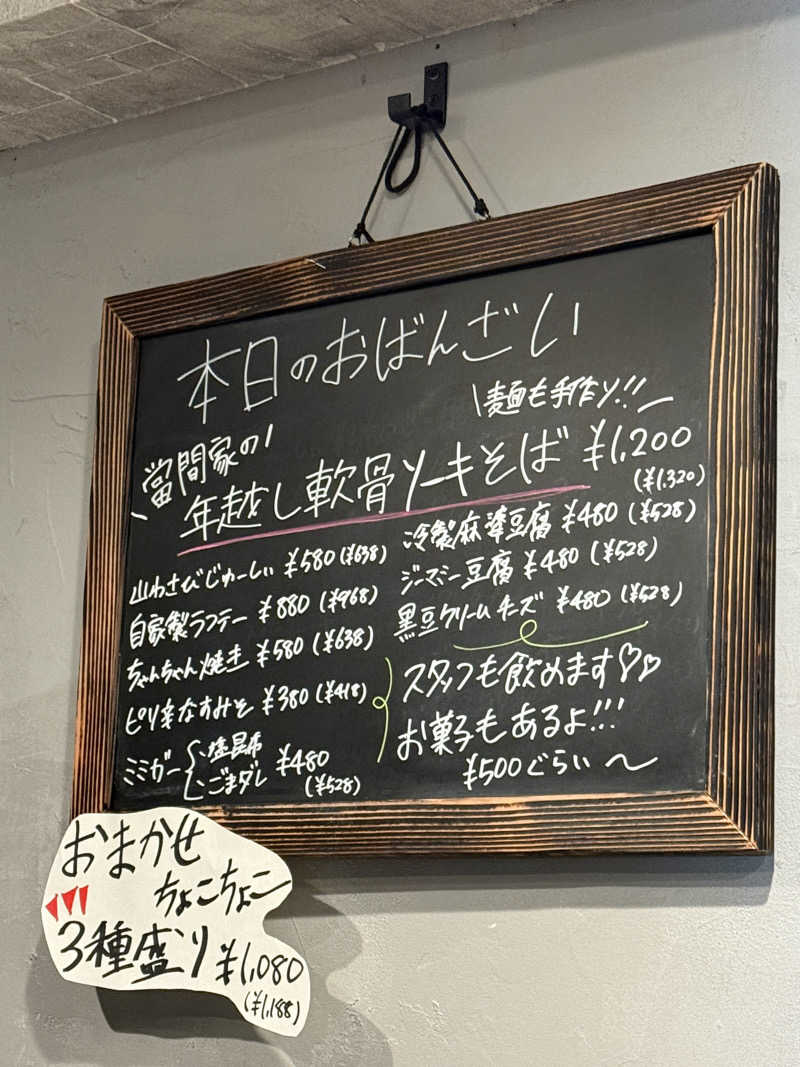 本日のおばんざい
\麺も手作り!!/
\當間家の/
年越し軟骨ソーキそば ¥1,200
(¥1,320)
山わさびじゅーしぃ ¥580(¥638)
自家製ラフテー ¥880(¥968)
ちゃんちゃん焼き ¥580(¥638)
ピリ辛なすみそ ¥380(¥418)
ミミガー 塩昆布
ごまダレ ¥480
(¥528)
冷製麻婆豆腐 ¥480(¥528)
ジーマミー豆腐 ¥480(¥528)
黒豆クリームチーズ ¥480(¥528)
スタッフも飲めます♡♡
お菓子もあるよ!!!
¥500ぐらい〜
おまかせ
ちょこちょこ
3種盛り ¥1,080
(¥1,188)